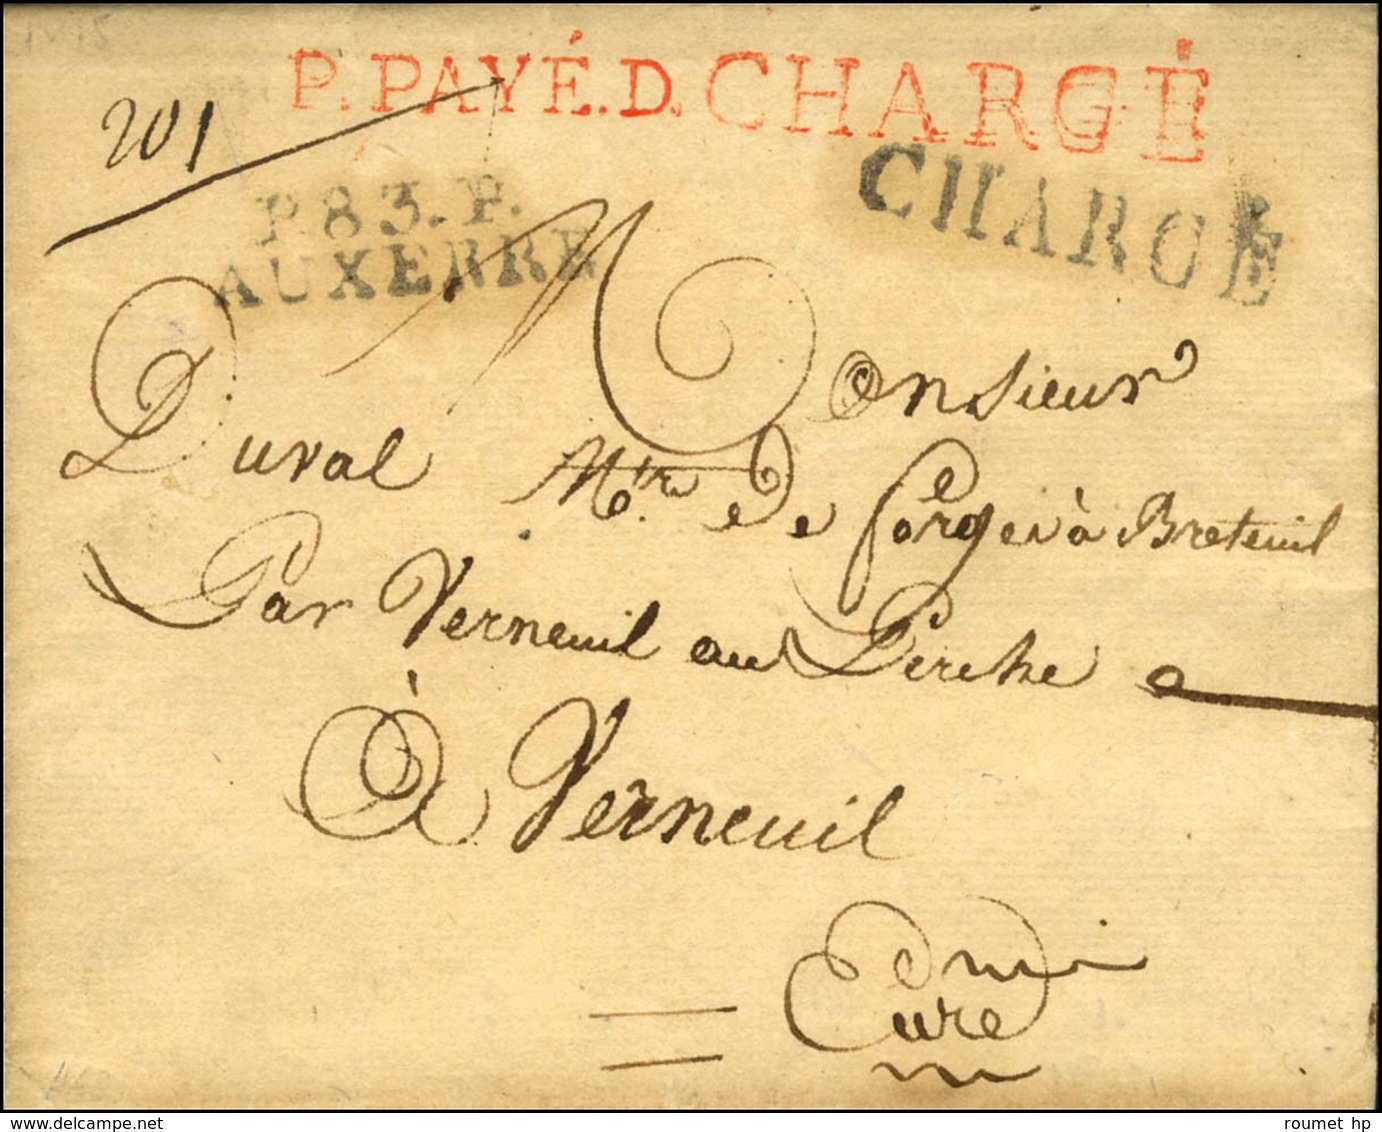 P.PAYÉ.D. CHARGÉ
201
P.83.P.
AUXERRE
CHARGÉ
Monsieur
Duval M.tre de forges à Breteuil
Par Verneuil au Perche
À Verneuil
Eure
roumet hp